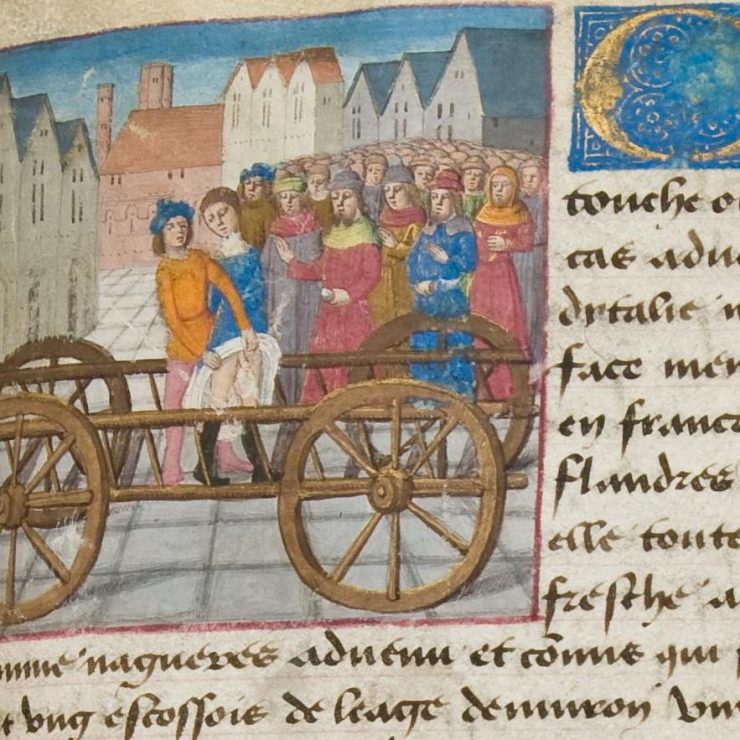 C
touche o
cas adu
dytalie
face men
en franc
flandres
elle toute
fresche a
nagueres advenu et conue qui
ung escossois de leage denviron